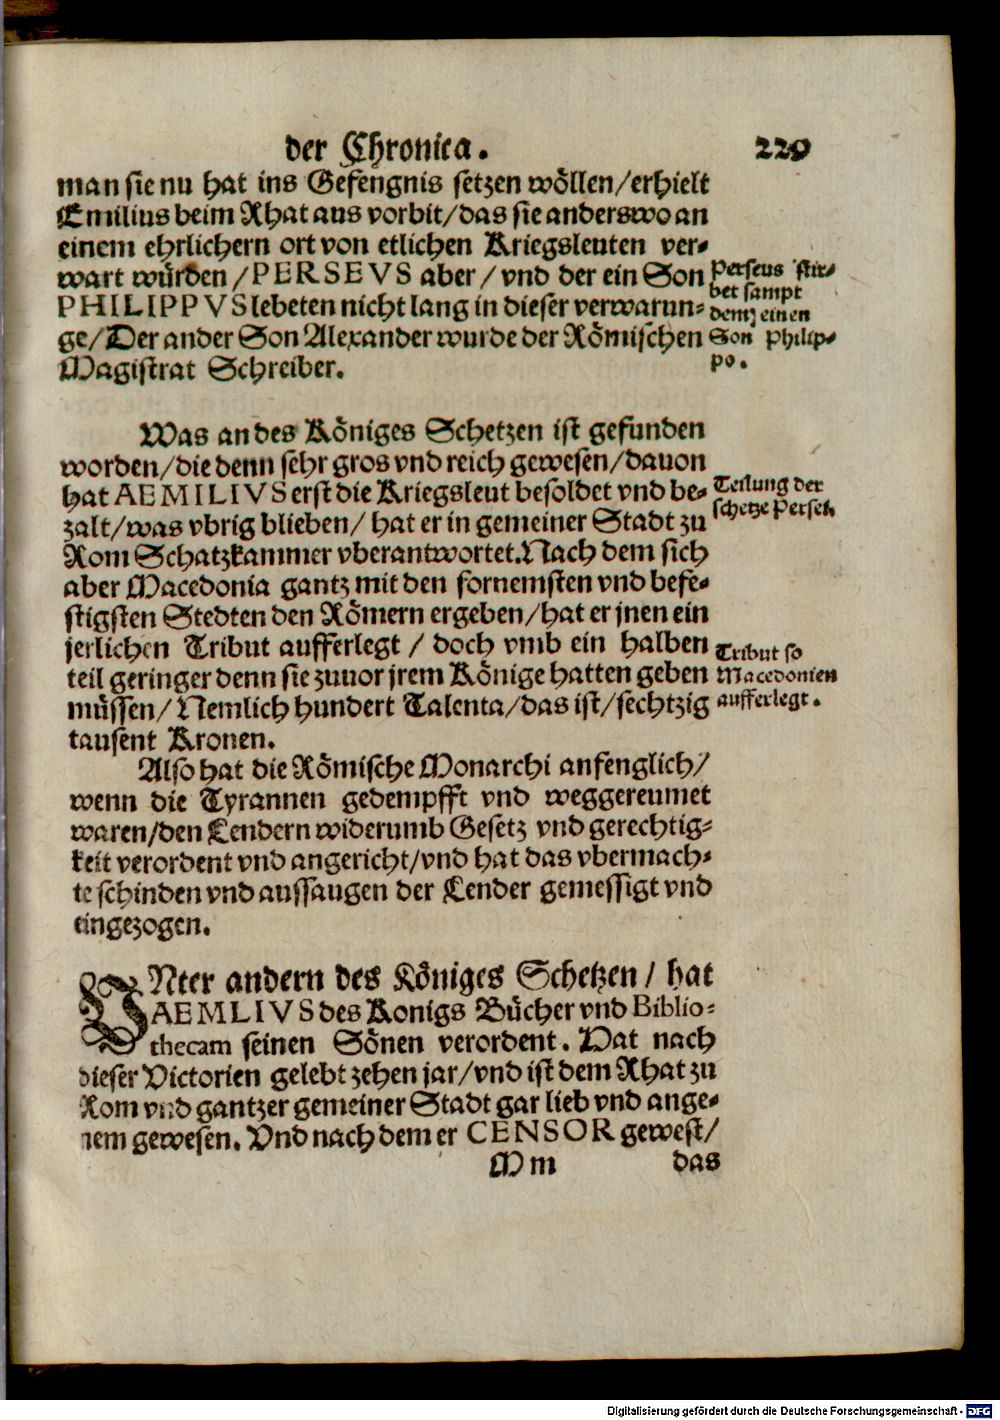 der Chronica. 229
man sie nu hat ins Gefengnis setzen wöllen/erhielt
Emilius beim Rhat aus vorbit/das sie anderswo an
einem ehrlichern ort von etlichen Kriegsleuten ver-
wart würden/PERSEVS aber/vnd der ein Son
PHILIPPVS lebeten nicht lang in dieser verwarun-
ge/Der ander Son Alexander wurde der Römischen
Magistrat Schreiber.
Perseus stir-
bet sampt
dem einen
Son Philip-
po.
Was an des Königes Schetzen ist gefunden
worden/die denn sehr gros vnd reich gewesen/dauon
hat AEMILIVS erst die Kriegsleut besoldet vnd be-
zalt/was vbrig blieben/hat er in gemeiner Stadt zu
Rom Schatzkammer vberantwortet. Nach dem sich
aber Macedonia gantz mit den fornemsten vnd befe-
stigsten Stedten den Römern ergeben/hat er jnen ein
jerlichen Tribut aufferlegt/doch vmb ein halben
teil geringer denn sie zuuor jrem Könige hatten geben
müssen/Nemlich hundert Talenta/das ist/sechtzig
tausent Kronen.
Teilung der
schetze Persei.
Tribut so
Macedonien
aufferlegt.
Also hat die Römische Monarchi anfenglich/
wenn die Tyrannen gedempfft vnd weggereumet
waren/den Lendern widerumb Gesetz vnd gerechtig-
keit verordent vnd angericht/vnd hat das vbermach-
te schinden vnd aussaugen der Lender gemessigt vnd
eingezogen.
VNter andern des Königes Schetzen/hat
AEMLIVS des Konigs Bücher vnd Biblio-
thecam seinen Sönen verordent. Hat nach
dieser Victorien gelebt zehen jar/vnd ist dem Rhat zu
Rom vnd gantzer gemeiner Stadt gar lieb vnd ange-
nem gewesen. Vnd nach dem er CENSOR gewest/
Mm das
Digitalisierung gefördert durch die Deutsche Forschungsgemeinschaft - DFG